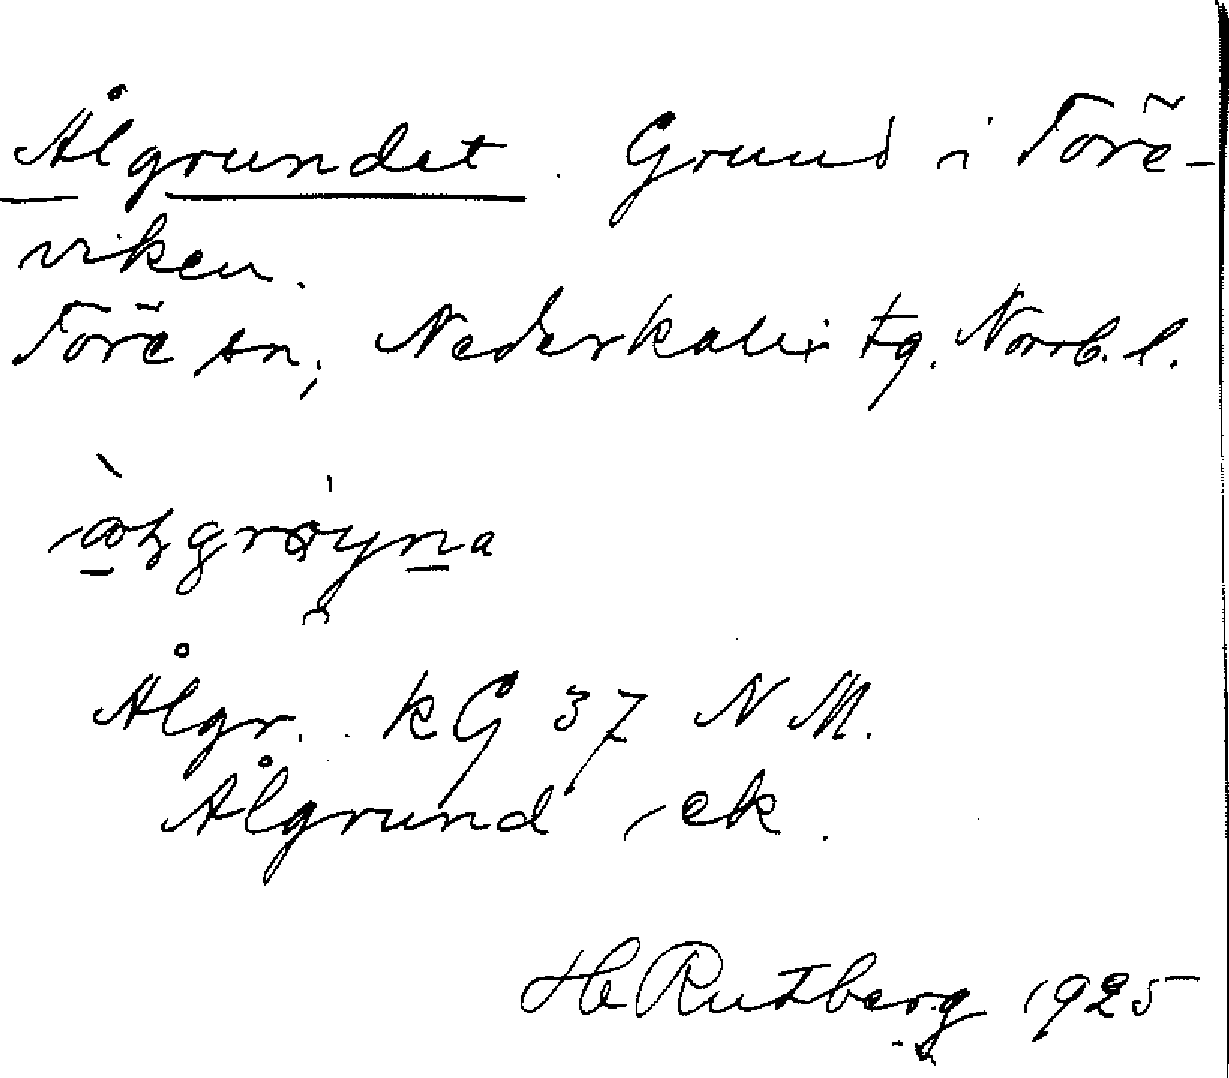 Ålgrundet. Grund i Töre-
viken.
Töre sn, Nederkalix tg. Norrb. l.
Ålgr. kG 37 NM.
Ålgrund, ek.
H Rutberg 1925